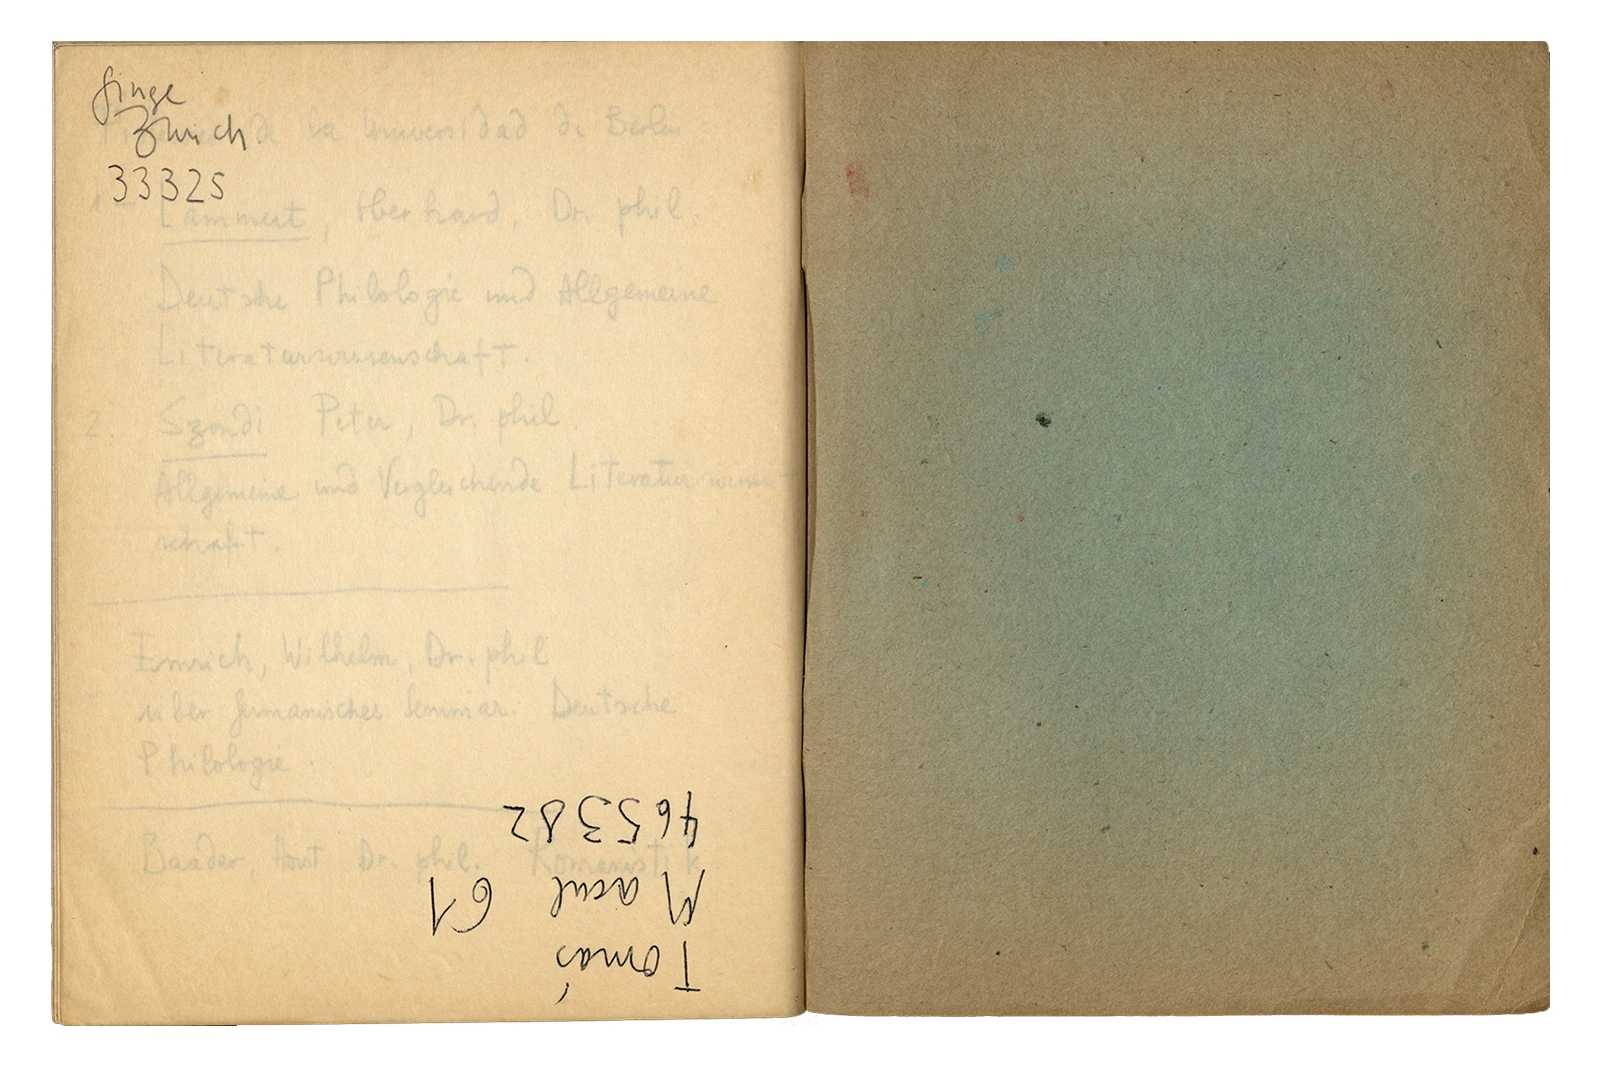 Zürich
33325
de la Universidad de Berlin
Lämmert, Eberhard, Dr. phil.
Deutsche Philologie und Allgemeine
Literaturwissenschaft.
2. Szondi Peter, Dr. phil.
Allgemeine und Vergleichende Literaturwissen-
schaft.
Emrich, Wilhelm, Dr. phil
über Germanisches Seminar. Deutsche
Philologie.
Baader, Horst Dr. phil. Romanistik
Tomás
Macul 61
465382